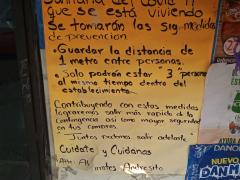 Sanitaria del Covid 19
que se está viviendo
Se tomarán las sig. medidas
de prevención
• Guardar la distancia de
1 metro entre personas.
• Solo podrán estar "3" personas
al mismo tiempo dentro del
establecimiento.
Contribuyendo con estas medidas
lograremos salir más rápido de la
contingencia así como mayor seguridad
en tus compras.
"Juntos podemos salir adelante"
Cuidate y Cuidanos
Att: Ab
rrotes Andresito
DANONE
NUEVO
DANM